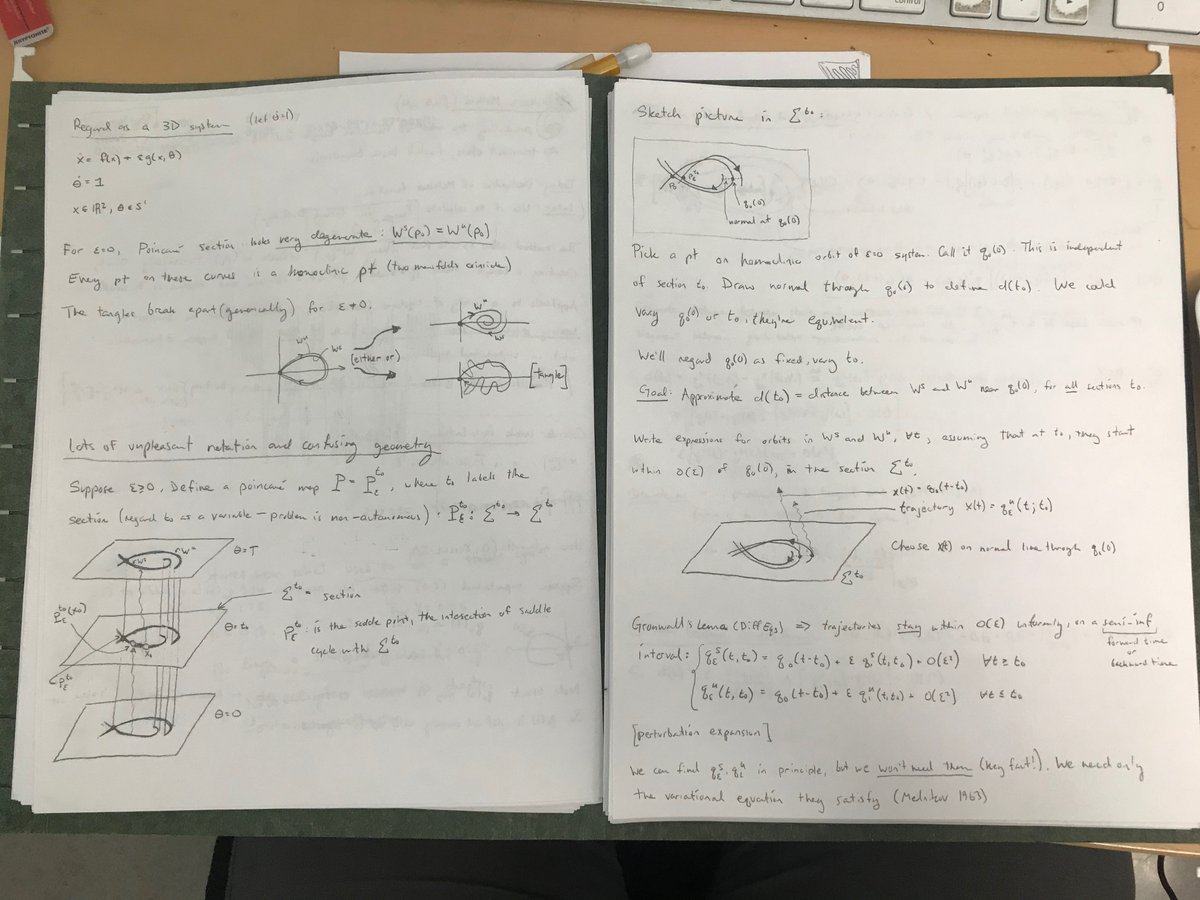 Regard as a 3D system (let θ̇=1)
ẋ = f(x) + εg(x, θ)
θ̇ = 1
x ∈ ℝ², θ ∈ S¹
For ε=0, Poincaré section looks very degenerate: Wˢ(p₀) = Wᵘ(p₀)
Every pt on these curves is a homoclinic pt (two manifolds coincide)
The tangles break apart (generically) for ε≠0.
Wᵘ
Wˢ
(either or)
Wᵘ
Wˢ
[tangle]
Lots of unpleasant notation and confusing geometry
Suppose ε≥0. Define a poincaré map P = P_ε^{t₀}, where t₀ labels the
section (regard t₀ as a variable - problem is non-autonomous). P_ε^{t₀}: Σ^{t₀} → Σ^{t₀}
Wᵘ
Wˢ
θ=T
P_ε^{t₀}(x₀)
θ=t₀
x₀
p_ε^{t₀}
θ=0
Σ^{t₀} = section
p_ε^{t₀}: is the saddle point, the intersection of saddle
cycle with Σ^{t₀}
Sketch picture in Σ^{t₀}:
p₀
p_ε^{t₀}
q₀(0)
normal at q₀(0)
Pick a pt on homoclinic orbit of ε=0 system. Call it q₀(0). This is independent
of section t₀. Draw normal through q₀(0) to define d(t₀). We could
vary q₀(0) or t₀, they're equivalent.
We'll regard q₀(0) as fixed, vary t₀.
Goal: Approximate d(t₀) = distance between Wˢ and Wᵘ near q₀(0), for all sections t₀.
Write expressions for orbits in Wˢ and Wᵘ, ∀t, assuming that at t₀, they start
within O(ε) of q₀(0), in the section Σ^{t₀}.
x(t) = q₀(t-t₀)
trajectory x(t) = q_ε^u(t; t₀)
Choose x(t) on normal line through q₀(0)
Σ^{t₀}
Gronwall's Lemma (Diff Eqs) => trajectories stay within O(ε) uniformly, on a semi-inf
forward time
or
backward time
interval: { q_ε^s(t, t₀) = q₀(t-t₀) + ε q₁^s(t, t₀) + O(ε²) ∀t ≥ t₀
q_ε^u(t, t₀) = q₀(t-t₀) + ε q₁^u(t, t₀) + O(ε²) ∀t ≤ t₀
[perturbation expansion]
We can find q_ε^s, q_ε^u in principle, but we won't need them (key fact!). We need only
the variational equation they satisfy (Melnikov 1963)
control
0